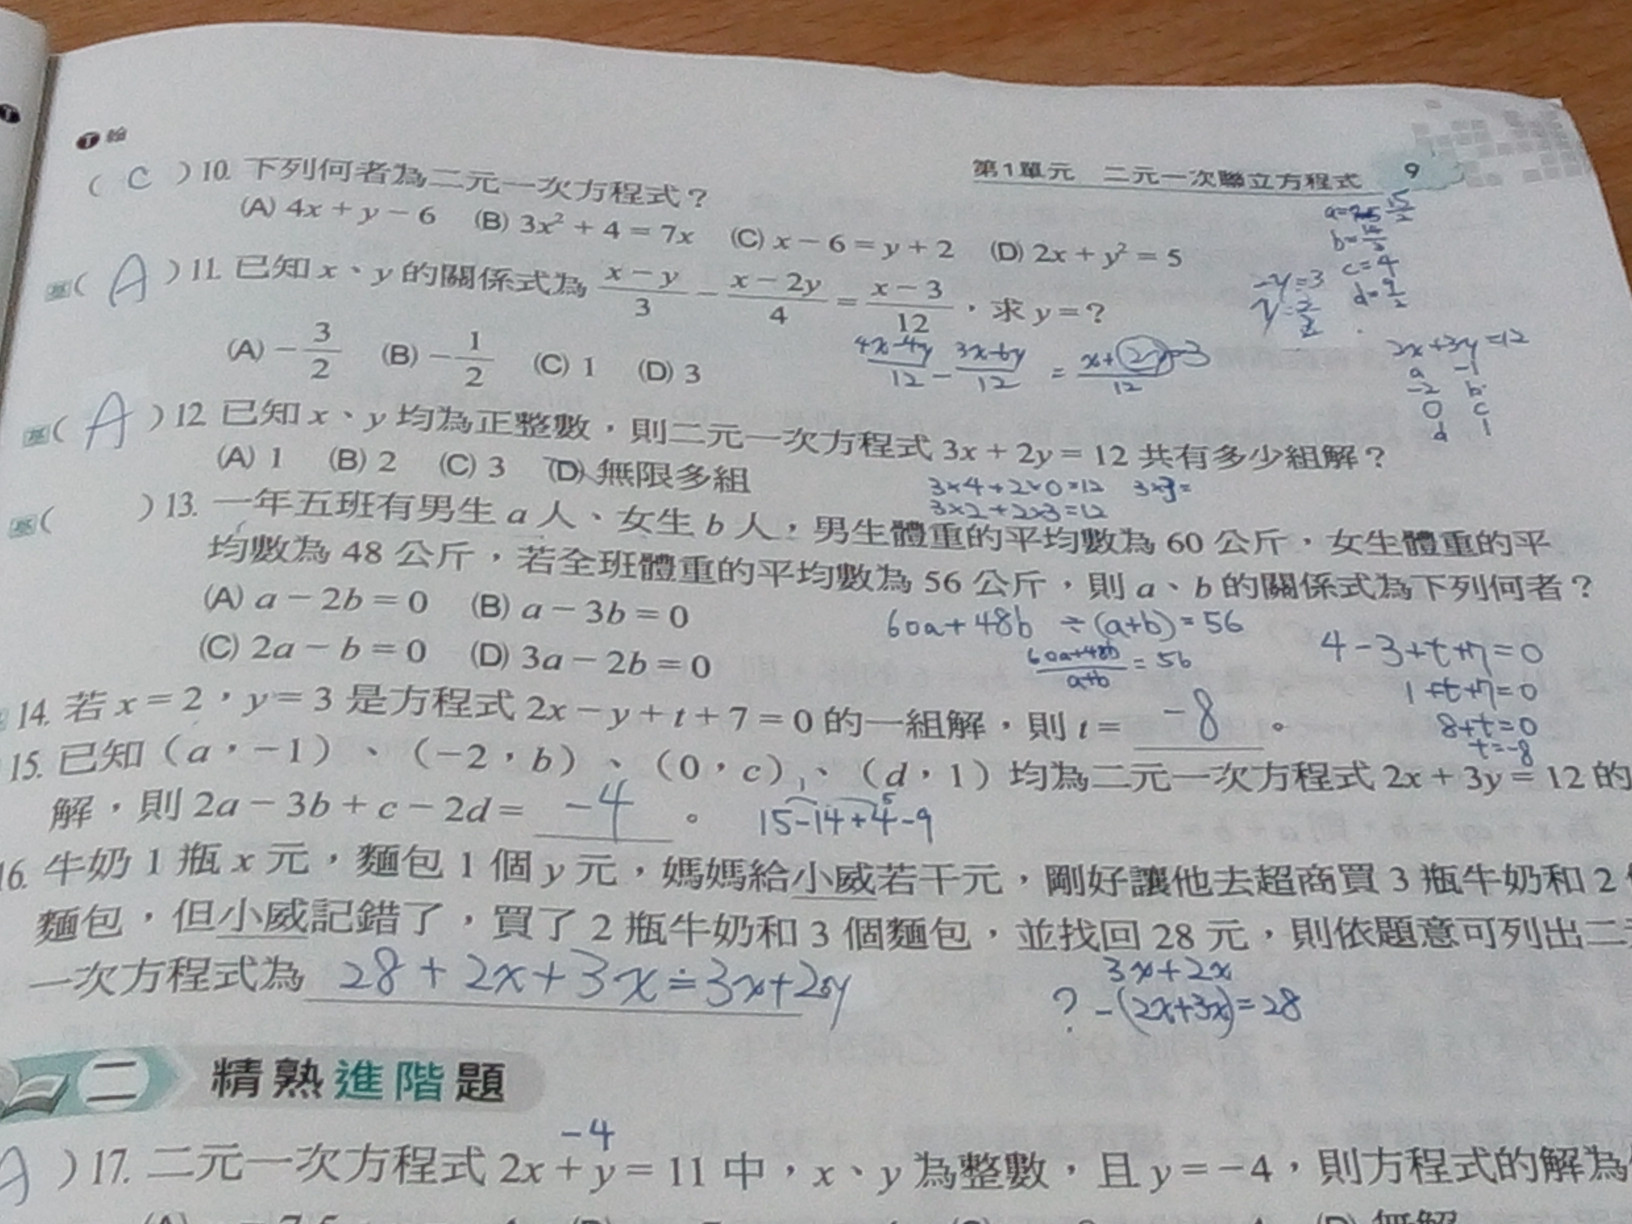 翰
第1單元 二元一次聯立方程式 9
( C )10. 下列何者為二元一次方程式？
(A) 4x + y − 6 (B) 3x² + 4 = 7x (C) x − 6 = y + 2 (D) 2x + y² = 5
a=
b=
c=4
d=9/2
基( A )11. 已知 x、y 的關係式為 (x − y)/3 − (x − 2y)/4 = (x − 3)/12，求 y = ？
−y=3
(A) −3/2 (B) −1/2 (C) 1 (D) 3
(4x−4y)/12 − (3x−6y)/12 = (x+2y−3)/12
2x+3y=12
a −1
−2 b
0 c
d 1
基( A )12. 已知 x、y 均為正整數，則二元一次方程式 3x + 2y = 12 共有多少組解？
(A) 1 (B) 2 (C) 3 (D) 無限多組
3×4+2×0=12 3×3=
3×2+2×3=12
基( )13. 一年五班有男生 a 人、女生 b 人，男生體重的平均數為 60 公斤，女生體重的平
均數為 48 公斤，若全班體重的平均數為 56 公斤，則 a、b 的關係式為下列何者？
(A) a − 2b = 0 (B) a − 3b = 0
(C) 2a − b = 0 (D) 3a − 2b = 0
60a+48b ÷(a+b)=56
(60a+48b)/(a+b) = 56
4−3+t+7=0
1+t+7=0
8+t=0
t=−8
14. 若 x = 2，y = 3 是方程式 2x − y + t + 7 = 0 的一組解，則 t = −8 。
15. 已知（a，−1）、（−2，b）、（0，c）、（d，1）均為二元一次方程式 2x + 3y = 12 的
解，則 2a − 3b + c − 2d = −4 。 15−14+4−9
16. 牛奶 1 瓶 x 元，麵包 1 個 y 元，媽媽給小威若干元，剛好讓他去超商買 3 瓶牛奶和 2
麵包，但小威記錯了，買了 2 瓶牛奶和 3 個麵包，並找回 28 元，則依題意可列出二
一次方程式為 28+2x+3x=3x+2y
3x+2x
?−(2x+3x)=28
二 精熟進階題
−4
A )17. 二元一次方程式 2x + y = 11 中，x、y 為整數，且 y = −4，則方程式的解為
(D) 無解